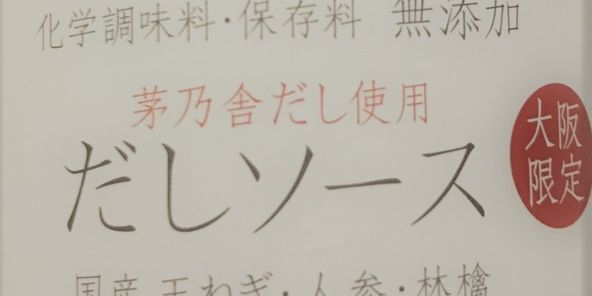 化学調味料・保存料 無添加
茅乃舎だし使用
だしソース
大阪
限定
国産 玉ねぎ・人参・林檎